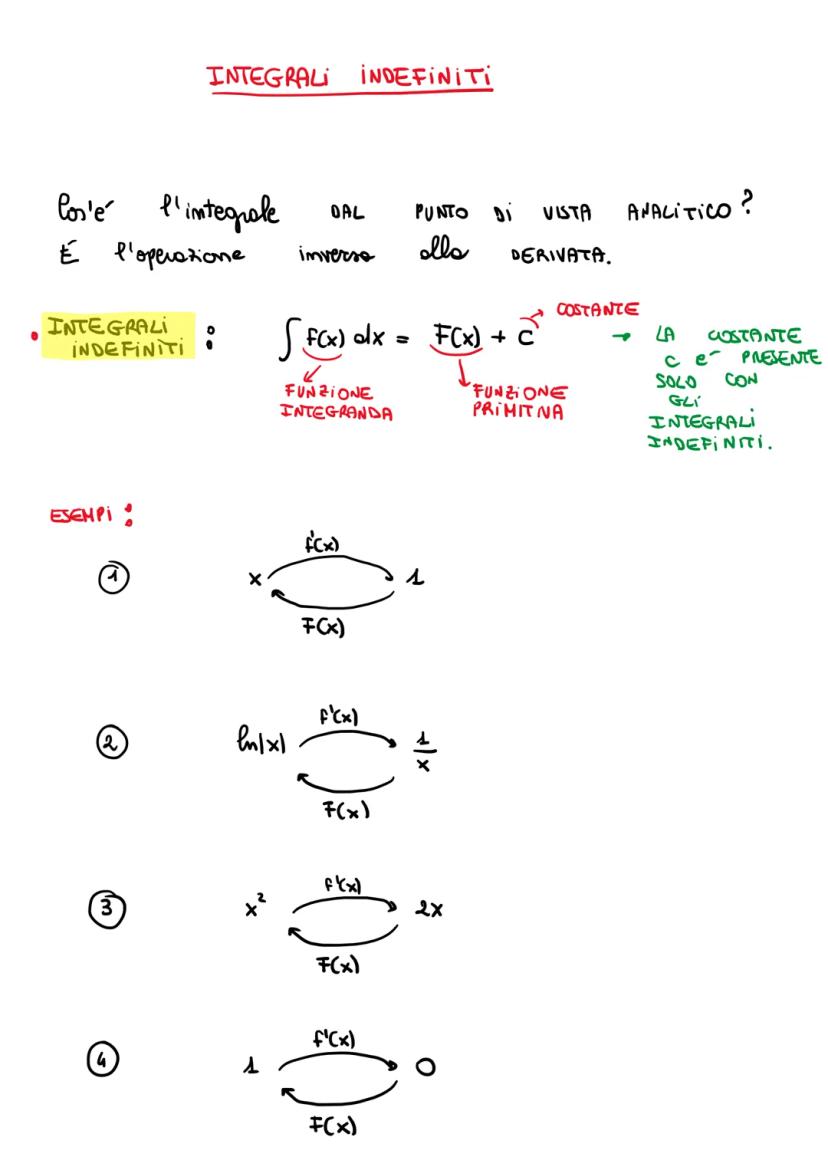 INTEGRALI INDEFINITI
Cos'e' l'integrale DAL PUNTO DI VISTA ANALITICO?
É l'operazione inversa alla DERIVATA.
• INTEGRALI INDEFINITI : ∫ f(x) dx = F(x) + C → COSTANTE
→ LA COSTANTE
C e' PRESENTE
SOLO CON
GLI
INTEGRALI
INDEFINITI.
FUNZIONE
INTEGRANDA
FUNZIONE
PRIMITIVA
ESEMPI :
① x f'(x) 1
F(x)
② ln|x| f'(x) 1/x
F(x)
③ x² f'(x) 2x
F(x)
④ 1 f'(x) 0
F(x)